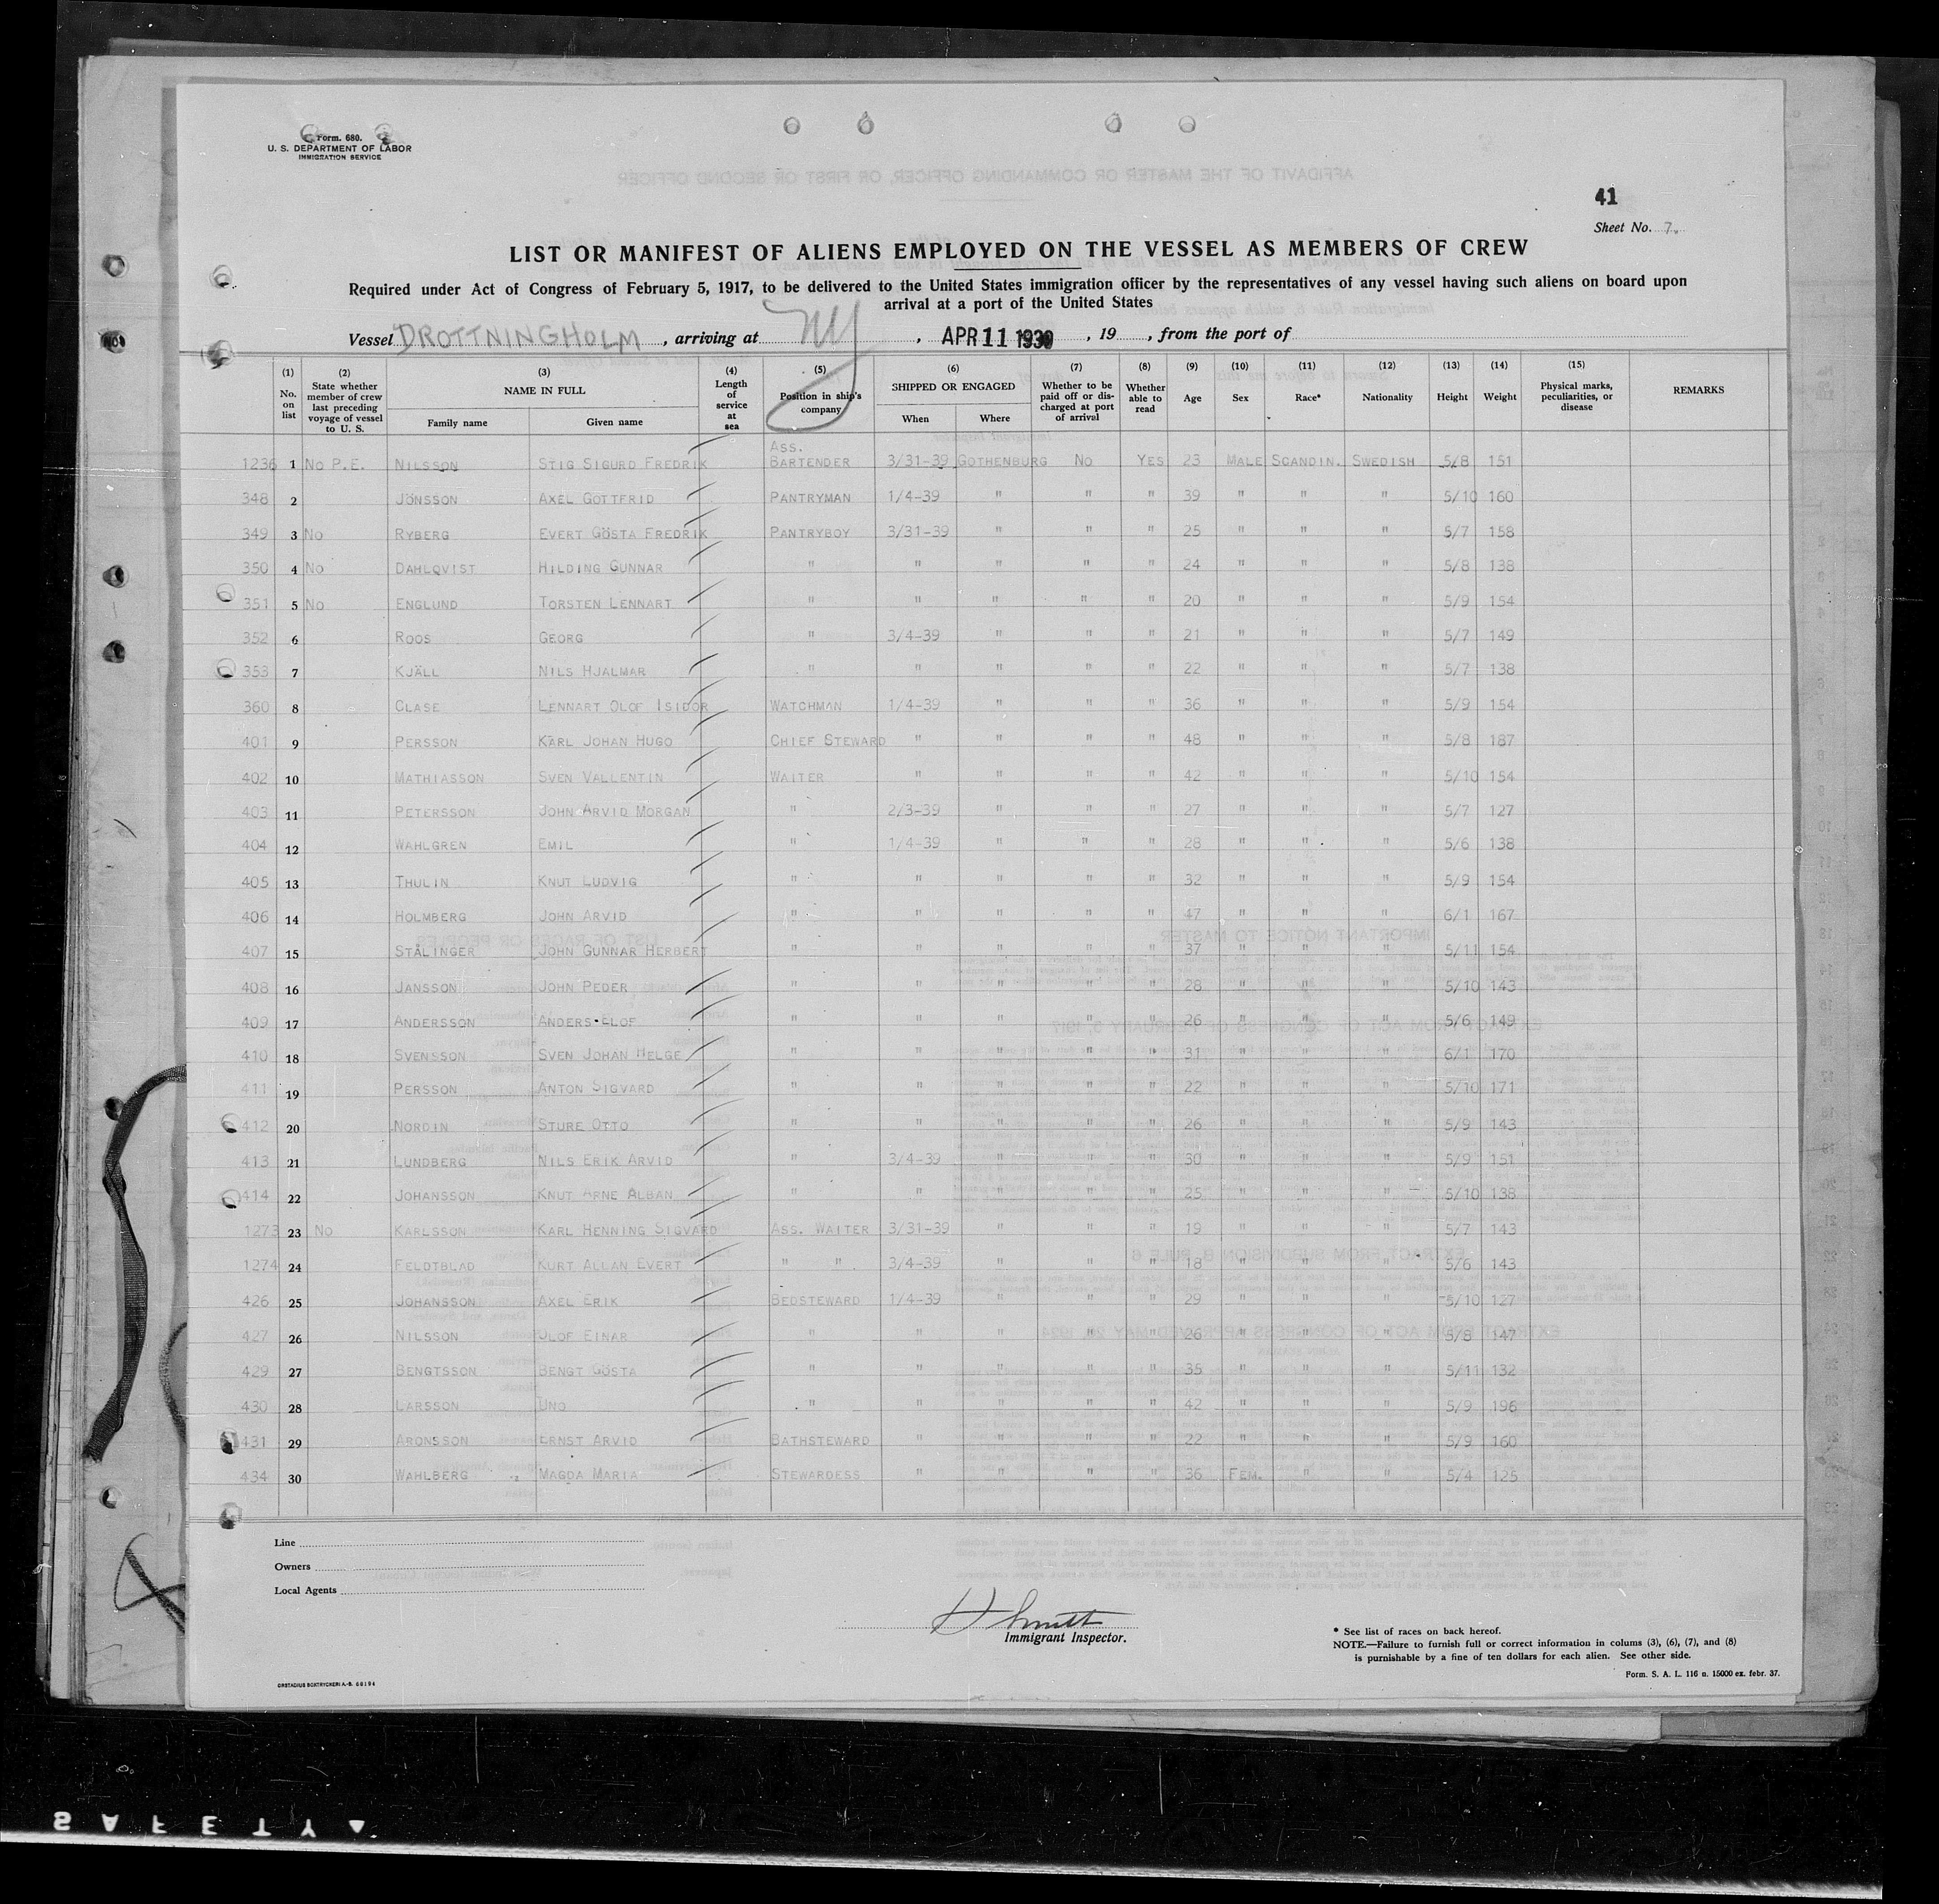 Form. 680.
U. S. DEPARTMENT OF LABOR
IMMIGRATION SERVICE
41
Sheet No. 7.
LIST OR MANIFEST OF ALIENS EMPLOYED ON THE VESSEL AS MEMBERS OF CREW
Required under Act of Congress of February 5, 1917, to be delivered to the United States immigration officer by the representatives of any vessel having such aliens on board upon
arrival at a port of the United States
Vessel DROTTNINGHOLM, arriving at NY, APR 11 1939, 19, from the port of
(1) No. on list (2) State whether member of crew last preceding voyage of vessel to U. S. (3) NAME IN FULL Family name Given name (4) Length of service at sea (5) Position in ship's company (6) SHIPPED OR ENGAGED When Where (7) Whether to be paid off or discharged at port of arrival (8) Whether able to read (9) Age (10) Sex (11) Race* (12) Nationality (13) Height (14) Weight (15) Physical marks, peculiarities, or disease REMARKS
1236 1 No P.E. NILSSON STIG SIGURD FREDRIK ASS. BARTENDER 3/31-39 GOTHENBURG NO YES 23 MALE SCANDIN. SWEDISH 5/8 151
348 2 JÖNSSON AXEL GOTTFRID PANTRYMAN 1/4-39 " " " 39 " " " 5/10 160
349 3 NO RYBERG EVERT GÖSTA FREDRIK PANTRYBOY 3/31-39 " " " 25 " " " 5/7 158
350 4 NO DAHLQVIST HILDING GUNNAR " " " " " 24 " " " 5/8 138
351 5 NO ENGLUND TORSTEN LENNART " " " " " 20 " " " 5/9 154
352 6 ROOS GEORG " 3/4-39 " " " 21 " " " 5/7 149
353 7 KJÄLL NILS HJALMAR " " " " " 22 " " " 5/7 138
360 8 CLASE LENNART OLOF ISIDOR WATCHMAN 1/4-39 " " " 36 " " " 5/9 154
401 9 PERSSON KARL JOHAN HUGO CHIEF STEWARD " " " " 48 " " " 5/8 187
402 10 MATHIASSON SVEN VALLENTIN WAITER " " " " 42 " " " 5/10 154
403 11 PETERSSON JOHN ARVID MORGAN " 2/3-39 " " " 27 " " " 5/7 127
404 12 WAHLGREN EMIL " 1/4-39 " " " 28 " " " 5/6 138
405 13 THULIN KNUT LUDVIG " " " " " 32 " " " 5/9 154
406 14 HOLMBERG JOHN ARVID " " " " " 47 " " " 6/1 167
407 15 STÅLINGER JOHN GUNNAR HERBERT " " " " " 37 " " " 5/11 154
408 16 JANSSON JOHN PEDER " " " " " 28 " " " 5/10 143
409 17 ANDERSSON ANDERS ELOF " " " " " 26 " " " 5/6 149
410 18 SVENSSON SVEN JOHAN HELGE " " " " " 31 " " " 6/1 170
411 19 PERSSON ANTON SIGVARD " " " " " 22 " " " 5/10 171
412 20 NORDIN STURE OTTO " " " " " 26 " " " 5/9 143
413 21 LUNDBERG NILS ERIK ARVID " 3/4-39 " " " 30 " " " 5/9 151
414 22 JOHANSSON KNUT ARNE ALBAN " " " " " 25 " " " 5/10 138
1273 23 NO KARLSSON KARL HENNING SIGVARD ASS. WAITER 3/31-39 " " " 19 " " " 5/7 143
1274 24 FELDTBLAD KURT ALLAN EVERT " " 3/4-39 " " " 18 " " " 5/6 143
426 25 JOHANSSON AXEL ERIK BEDSTEWARD 1/4-39 " " " 29 " " " 5/10 127
427 26 NILSSON OLOF EINAR " " " " " 26 " " " 5/8 147
429 27 BENGTSSON BENGT GÖSTA " " " " " 35 " " " 5/11 132
430 28 LARSSON UNO " " " " " 42 " " " 5/9 196
431 29 ARONSSON ERNST ARVID BATHSTEWARD " " " " 22 " " " 5/9 160
434 30 WAHLBERG MAGDA MARIA STEWARDESS " " " " 36 FEM. " " 5/4 125
Line
Owners
Local Agents
Smith
Immigrant Inspector.
* See list of races on back hereof.
NOTE.—Failure to furnish full or correct information in colums (3), (6), (7), and (8)
is purnishable by a fine of ten dollars for each alien. See other side.
Form. S. A. L. 116 n. 15000 ex. febr. 37.
ORSTADIUS BOKTRYCKERI A.-B. 60194
SAFETY